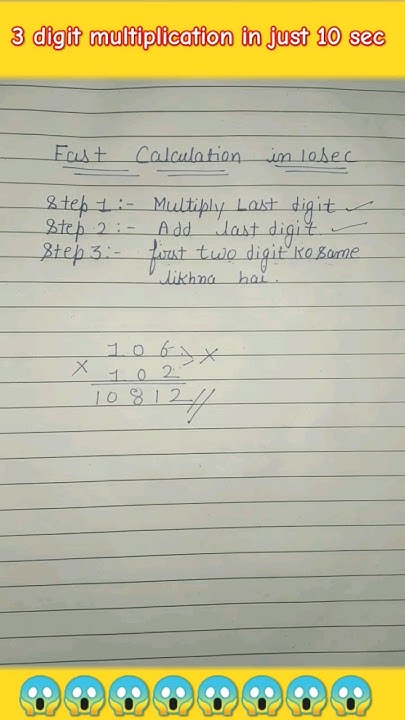 3 digit multiplication in just 10 sec
Fast Calculation in 10sec
Step 1 :- Multiply Last digit ✓
Step 2 :- Add last digit. ✓
Step 3 :- first two digit ko same
likhna hai.
106
× 102 > ×
10812//